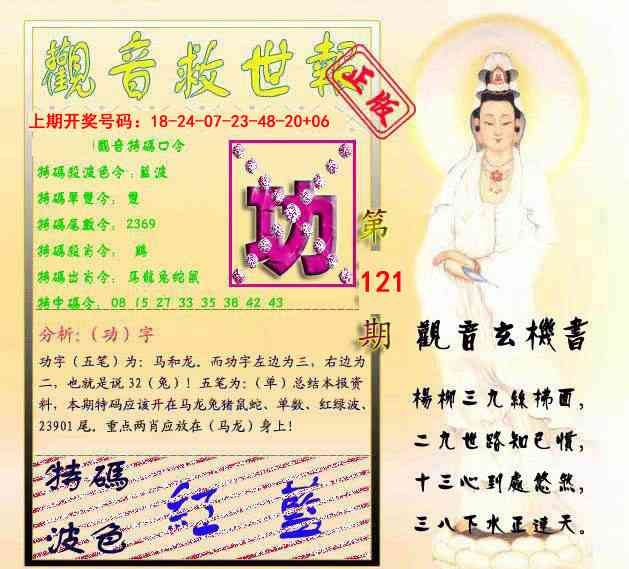 觀音救世報
正版
上期开奖号码：18-24-07-23-48-20+06
觀音特碼口令
特碼殺波色令：藍波
特碼單雙令：雙
特碼尾數令：2369
特碼殺肖令：鷄
特碼出肖令：馬龍兔蛇鼠
特中碼令：08 15 27 33 35 38 42 43
功
第
121
期
分析：（功）字
功字（五笔）为：马和龙。而功字左边为三，右边为
二，也就是说 32（兔）！五笔为：（单）总结本报资
料，本期特码应该开在马龙兔猪鼠蛇、单数、红绿波、
23901 尾。重点两肖应放在（马龙）身上！
特碼
波色
红 藍
觀音玄機書
楊柳三九絲拂面，
二九世路知已慣，
十三心到處悠然，
三八下水正連天。